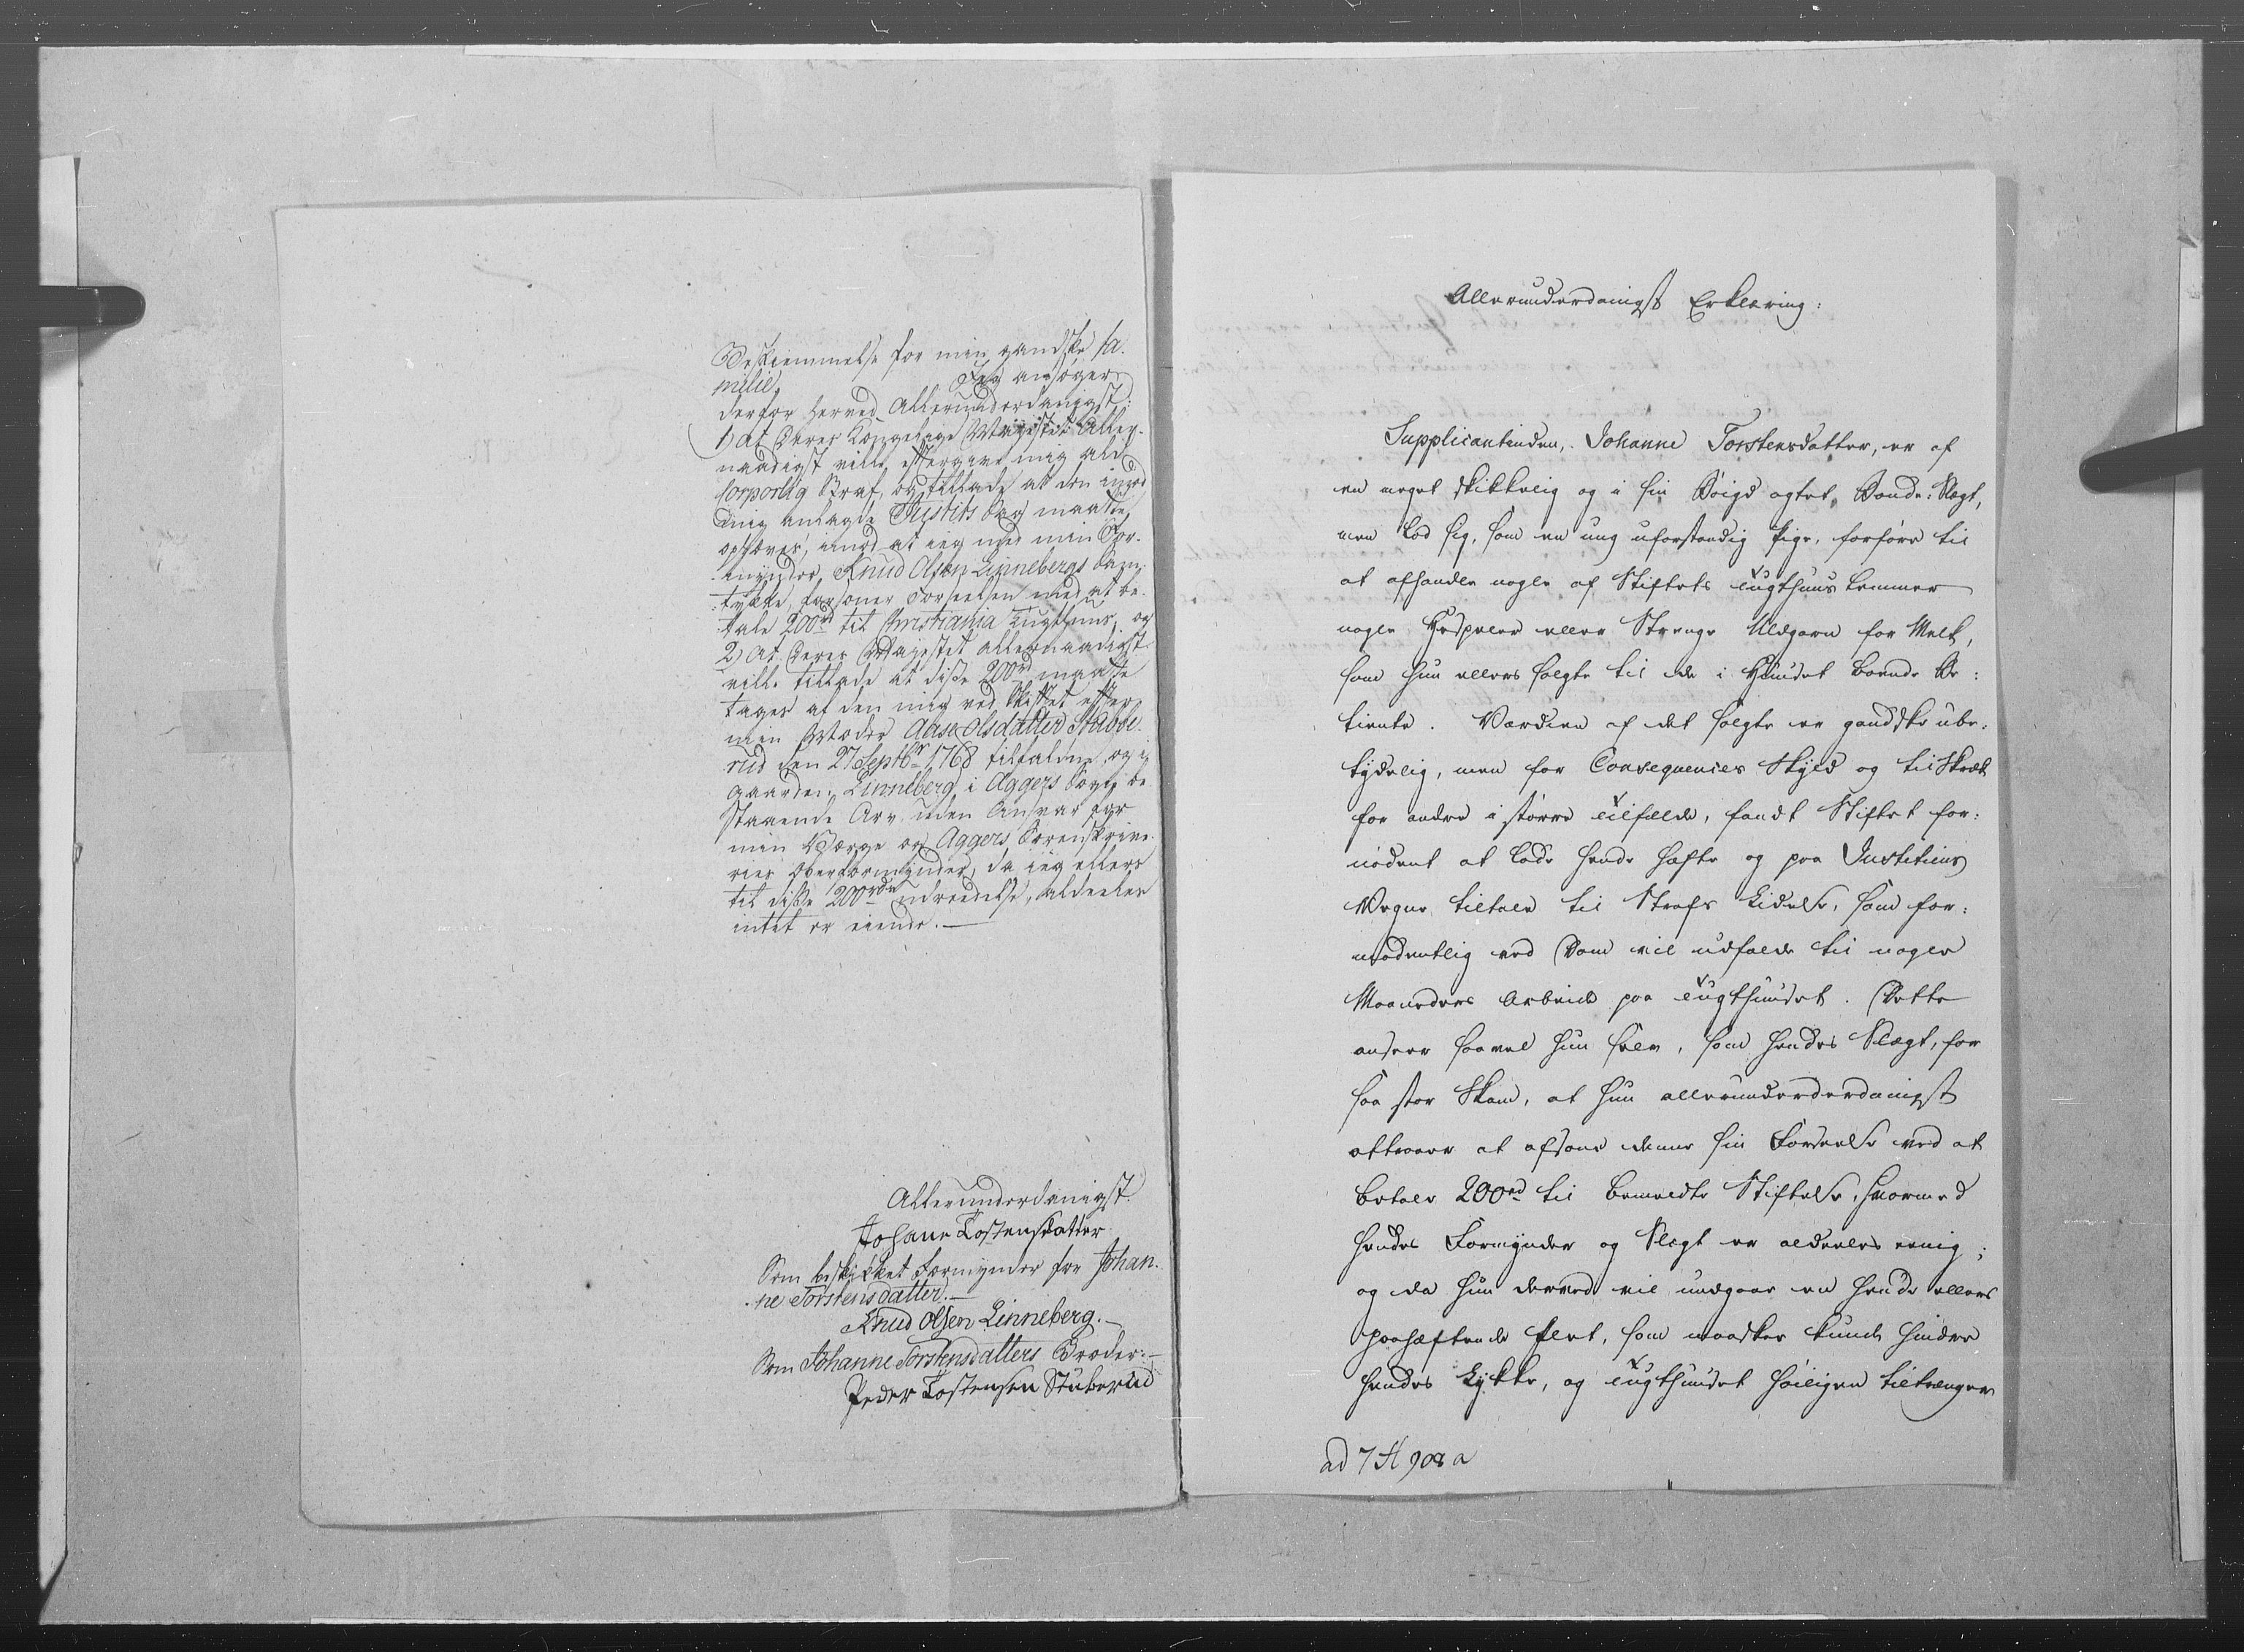 Beskiemmelse for min gandske fa-
milie. Jeg ansøger
derfor herved Allerunderdanigst:
1) at Deres Kongelige Majestet Aller-
naadigst ville eftergive mig all
Corporlig Straf, og tillade at den imod
mig anlagde Justits Sag maatte
ophæves, imod at ieg med min For-
mynder Knud Olsen Linnebergs Sam-
tykke, forsoner Forseelsen med at be-
tale 200rd til Christiania Tugthuus; og
2) At Deres Majestet allernaadigst
ville tillade at disse 200rd maatte
tages af den mig ved Skiftet efter
min Moder Aase Olsdatter Stubbe-
rud den 27 Septbr 1768 tilfaldne, og i
Gaarden Linneberg i Aggers Sogn be-
staaende Arv uden Ansvar for
min Værge og Aggers Sorenskrive-
ries Overformynder, da ieg ellers
til disse 200rdr udreedelse, aldeeles
intet er eiende.
Allerunderdanigst
Johane Tostensdatter
Som beskikket Formynder for Johan-
ne Torstensdatter.
Knud Olsen Linneberg.
Som Johanne Torstensdatters Broder.
Peder Tostensen Stuberud
Allerunderdanigst Erklæring:
Supplicantinden, Johanne Torstensdatter, er af
en meget skikkelig og i sin Bøigd agtet Bonde-Slegt,
men lod sig, som en ung uforstandig Pige, forføre til
at afhandle nogle af Stiftets Tugthuus Lemmer
nogle Hespeler eller Strenge Uldgarn for Melk,
som hun ellers solgte til de i Huuset boende Be-
tiente. Værdien af det solgte er gandske ube-
tydelig, men for Consequencers Skyld og til Skræk
for andre i større Tilfælde, fandt Stiftet for-
nødent at lade hende hæfte og paa Justitiens
Vegne tiltale til Strafs Lidelse, som for-
modentlig ved Dom vil udfalde til nogle
Maaneders Arbeide paa Tugthuuset. Dette
anseer saavel hun selv, som hendes Slægt, for
saa stor Skam, at hun allerunderderdanigst
attraaer at afsone denne sin Forseelse ved at
betale 200rd til bemeldte Stiftelse, hvormed
hendes Formynder og Slegt er aldeeles eenig;
og da hun derved vil undgaae en hende ellers
paahæftende Plet, som maaskee kunde hindre
hendes Lykke, og Tugthuuset høiligen tiltrænger
ad 7 H 908 a